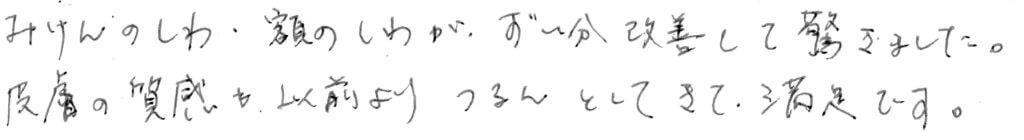 みけんのしわ・額のしわが、ずい分改善して驚きました。
皮膚の質感も以前より つるんとしてきて、満足です。